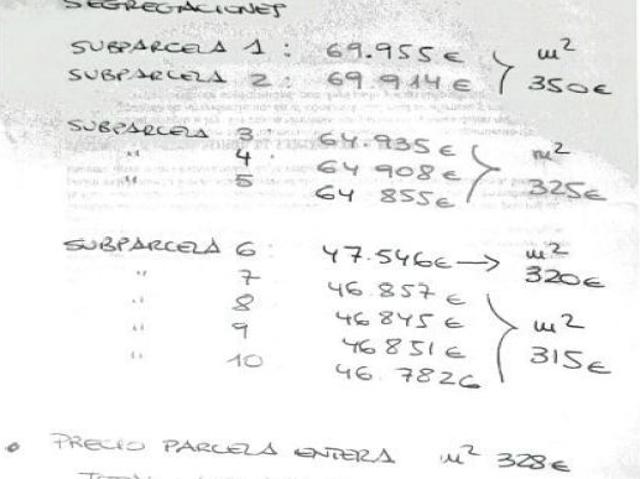 SEGREGACIONES
SUBPARCELA 1 : 69.955 € m²
SUBPARCELA 2 : 69.914 € 350€
SUBPARCELA 3 : 64.935 € m²
" 4 : 64 908 € 325€
" 5 64 855€
SUBPARCELA 6 : 47.546€ → m² 320€
" 7 46.857 €
" 8 46.845 € m²
" 9 46.851 € 315€
" 10 46.782€
• PRECIO PARCELA ENTERA m² 328€